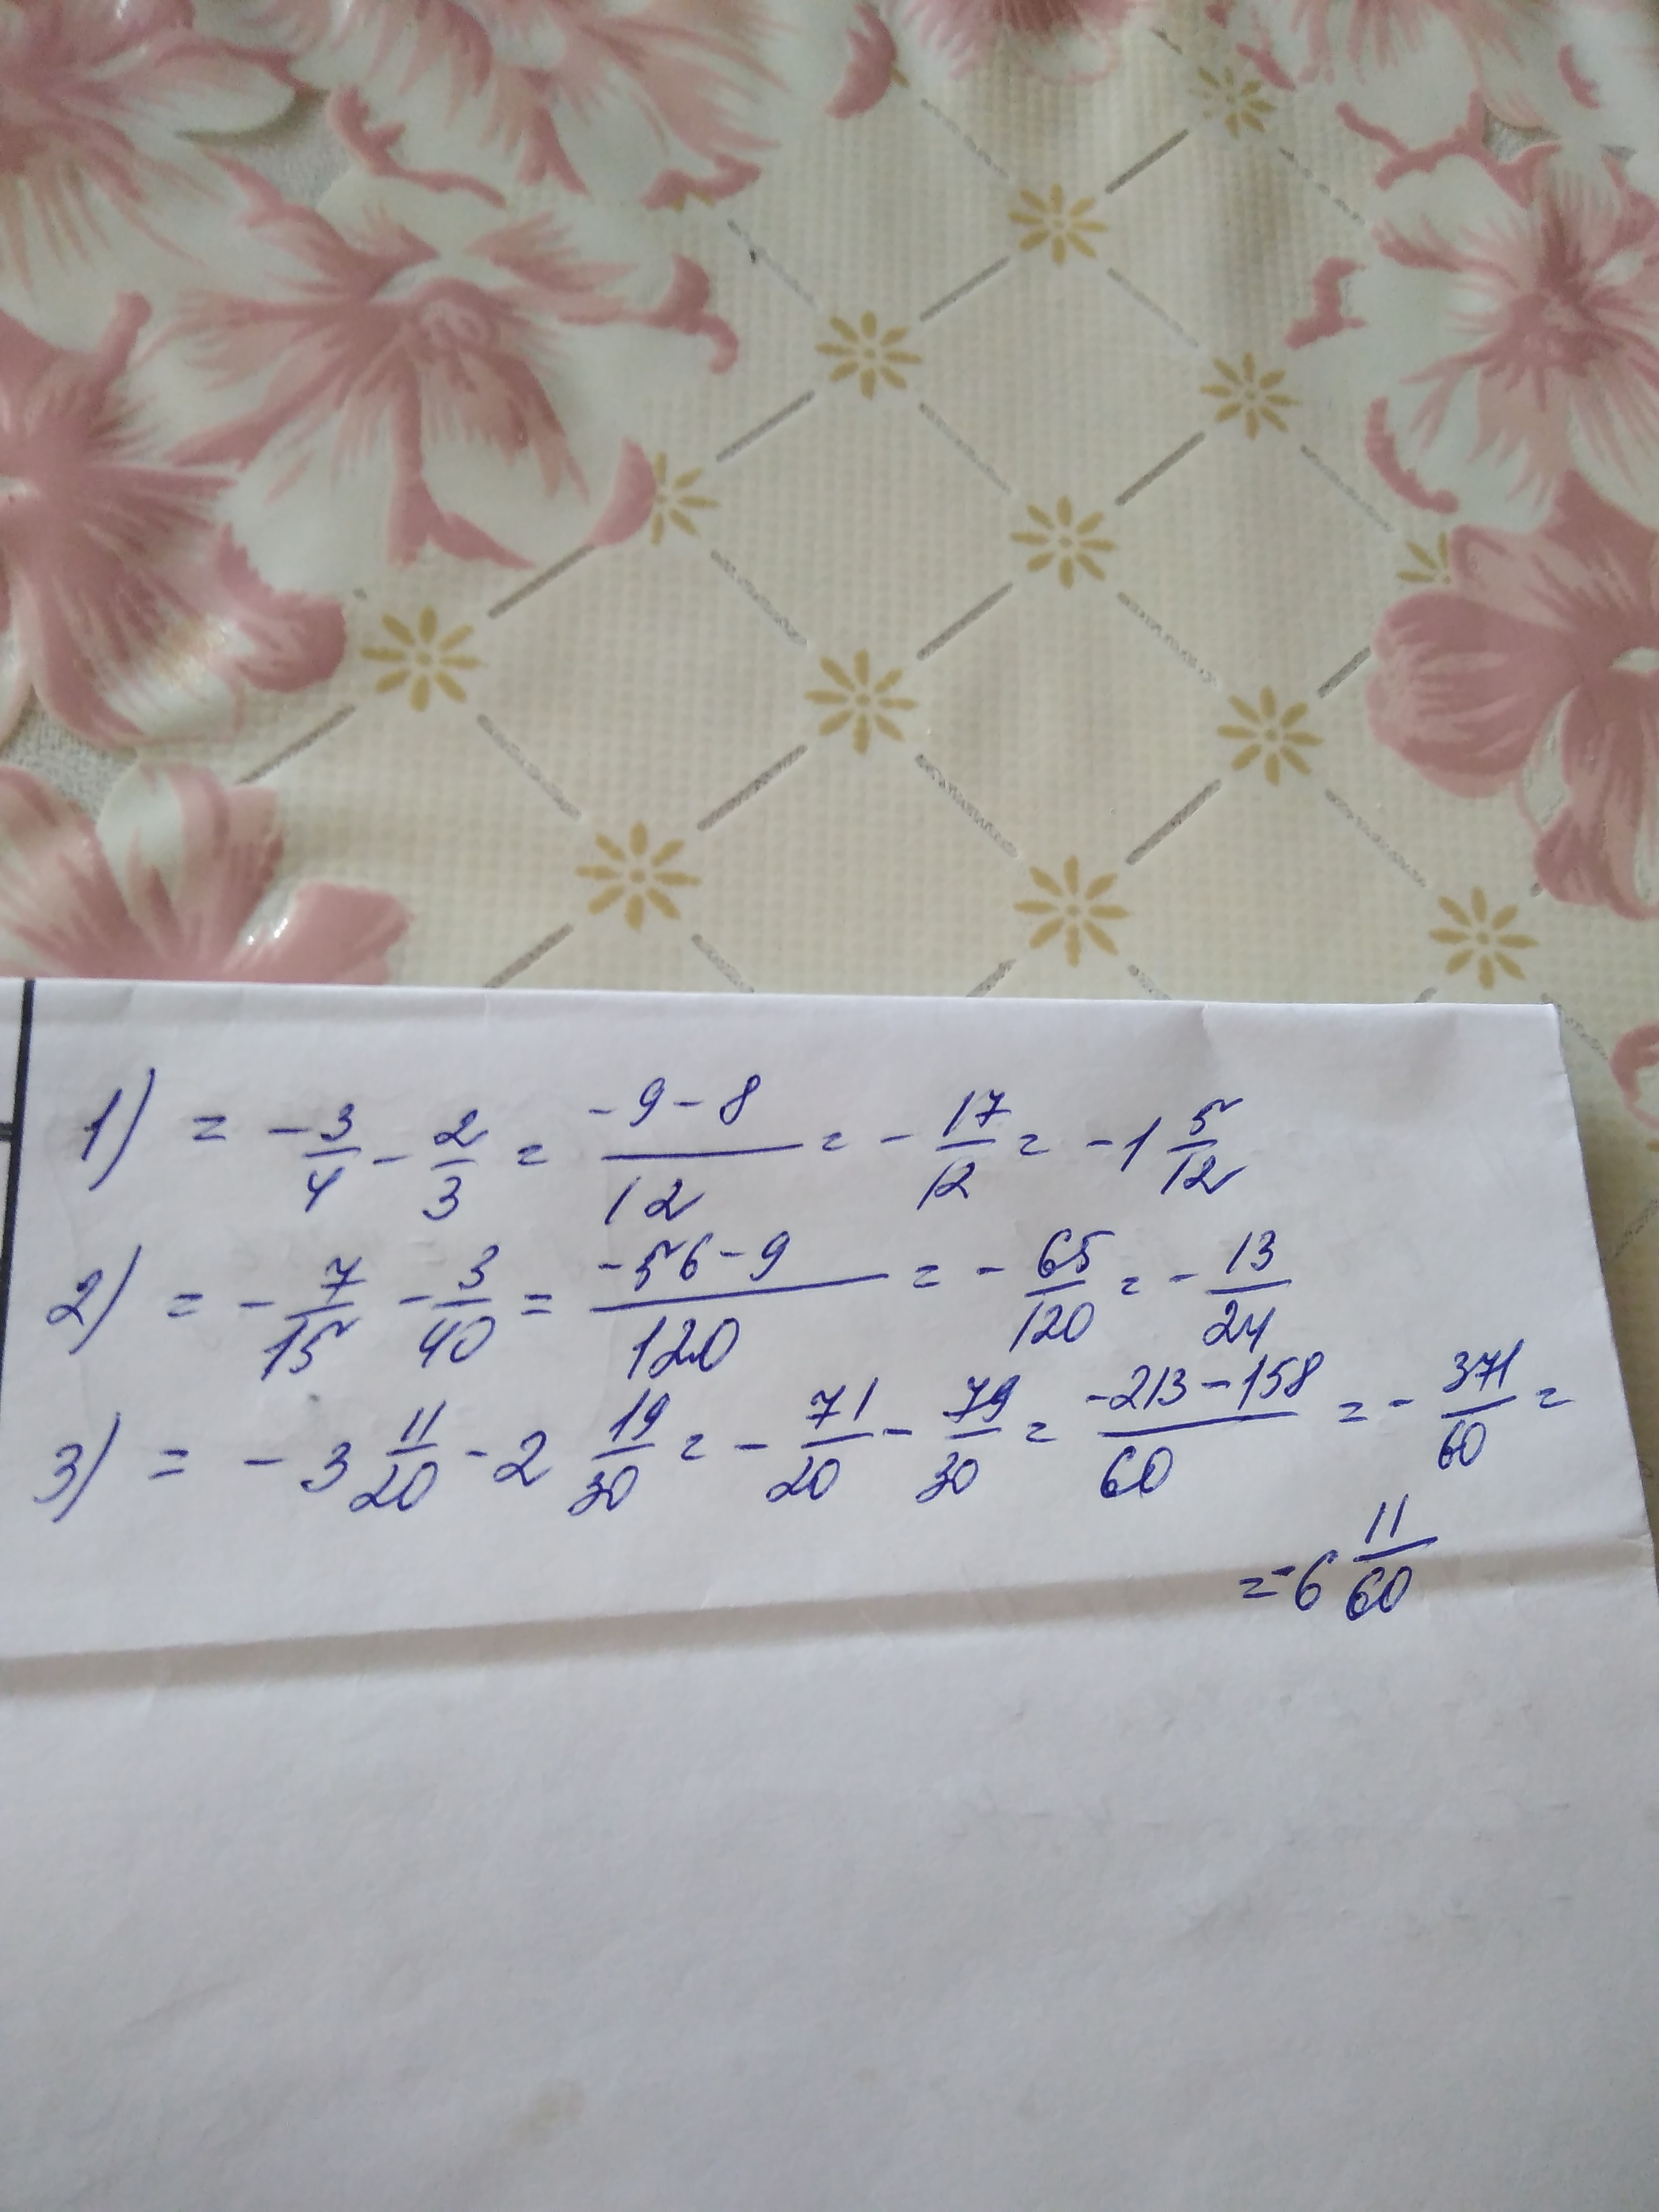 1) = -3/4 - 2/3 = (-9-8)/12 = -17/12 = -1 5/12
2) = -7/15 - 3/40 = (-56-9)/120 = -65/120 = -13/24
3) = -3 11/20 - 2 19/30 = -71/20 - 79/30 = (-213-158)/60 = -371/60 =
= -6 11/60